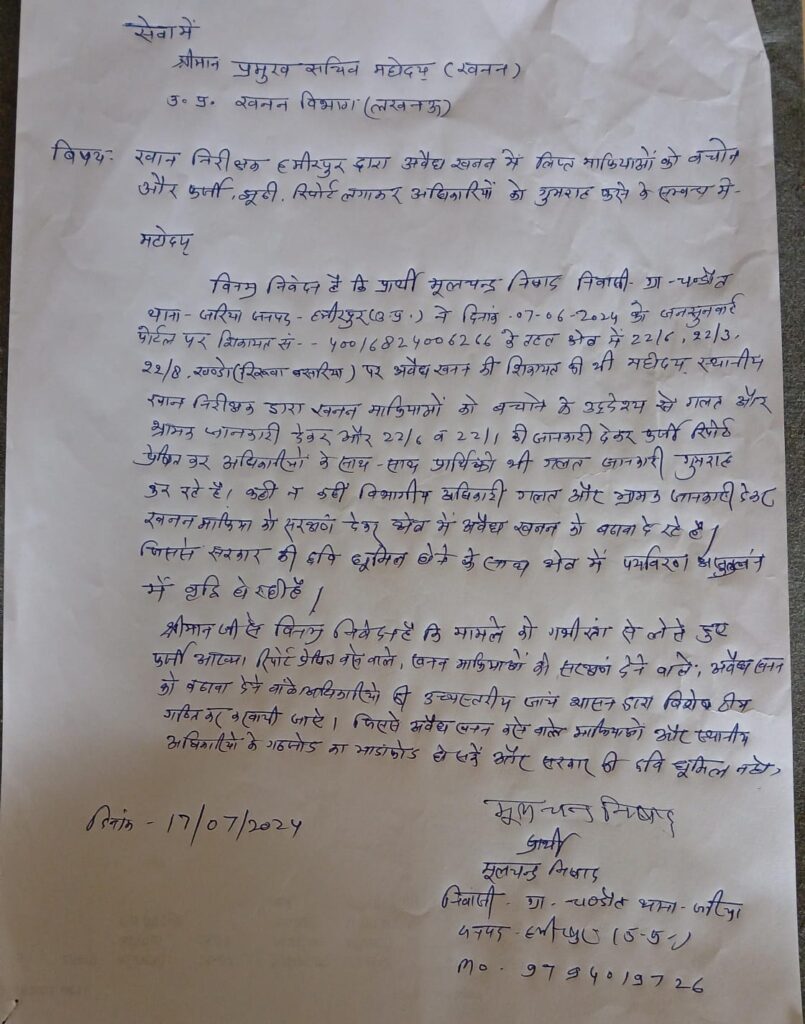 सेवा में
श्रीमान प्रमुख सचिव महोदय (खनन)
उ० प्र० खनन विभाग (लखनऊ)
विषय: खान निरीक्षक हमीरपुर द्वारा अवैध खनन में लिप्त माफियाओं को बचाने
और फर्जी, झूठी, रिपोर्ट लगाकर अधिकारियों को गुमराह करने के सम्बन्ध में-
महोदय
विनम्र निवेदन है कि प्रार्थी मूलचन्द्र निषाद निवासी- ग्रा - चण्डौत
थाना- जरिया जनपद - हमीरपुर (उ.प्र.) ने दिनांक -07-06-2024 को जनसुनवाई
पोर्टल पर शिकायत सं- - 40016824006266 के तहत क्षेत्र में 22/6, 22/3,
22/8, खण्डो (बिरुवा बसरिया) पर अवैध खनन की शिकायत की थी महोदय, स्थानीय
खान निरीक्षक द्वारा खनन माफियाओं को बचाने के उद्देश्य से गलत और
भ्रामक जानकारी देकर और 22/6 व 22/1 की जानकारी देकर फर्जी रिपोर्ट
प्रेषित कर अधिकारियों के साथ-साथ प्रार्थी को भी गलत जानकारी गुमराह
कर रहे है। कहीं न कहीं विभागीय अधिकारी गलत और भ्रामक जानकारी देकर
खनन माफिया को संरक्षण देकर क्षेत्र में अवैध खनन को बढावा दे रहे है।
जिससे सरकार की छवि धूमिल होने के साथ क्षेत्र में पर्यावरण
में वृद्धि हो रही है।
श्रीमान जी से विनम्र निवेदन है कि मामले को गम्भीरता से लेते हुए
फर्जी आख्या, रिपोर्ट प्रेषित करने वाले, खनन माफियाओं को संरक्षण देने वाले, अवैध खनन
को बढावा देने वाले अधिकारियो की उच्चस्तरीय जांच शासन द्वारा विशेष टीम
गठित कर करवायी जाऐ। जिससे अवैध खनन करने वाले माफियाओं और स्थानीय
अधिकारियों के गठजोड का भाडाफोड हो सकें और सरकार की छवि धूमिल न हो,
मूलचन्द्र निषाद
दिनांक - 17/07/2024
प्रार्थी
मूलचन्द्र निषाद
निवासी - ग्रा - चण्डौत थाना - जरिया
जनपद - हमीरपुर (उ-प्र-)
mo - 9794019726